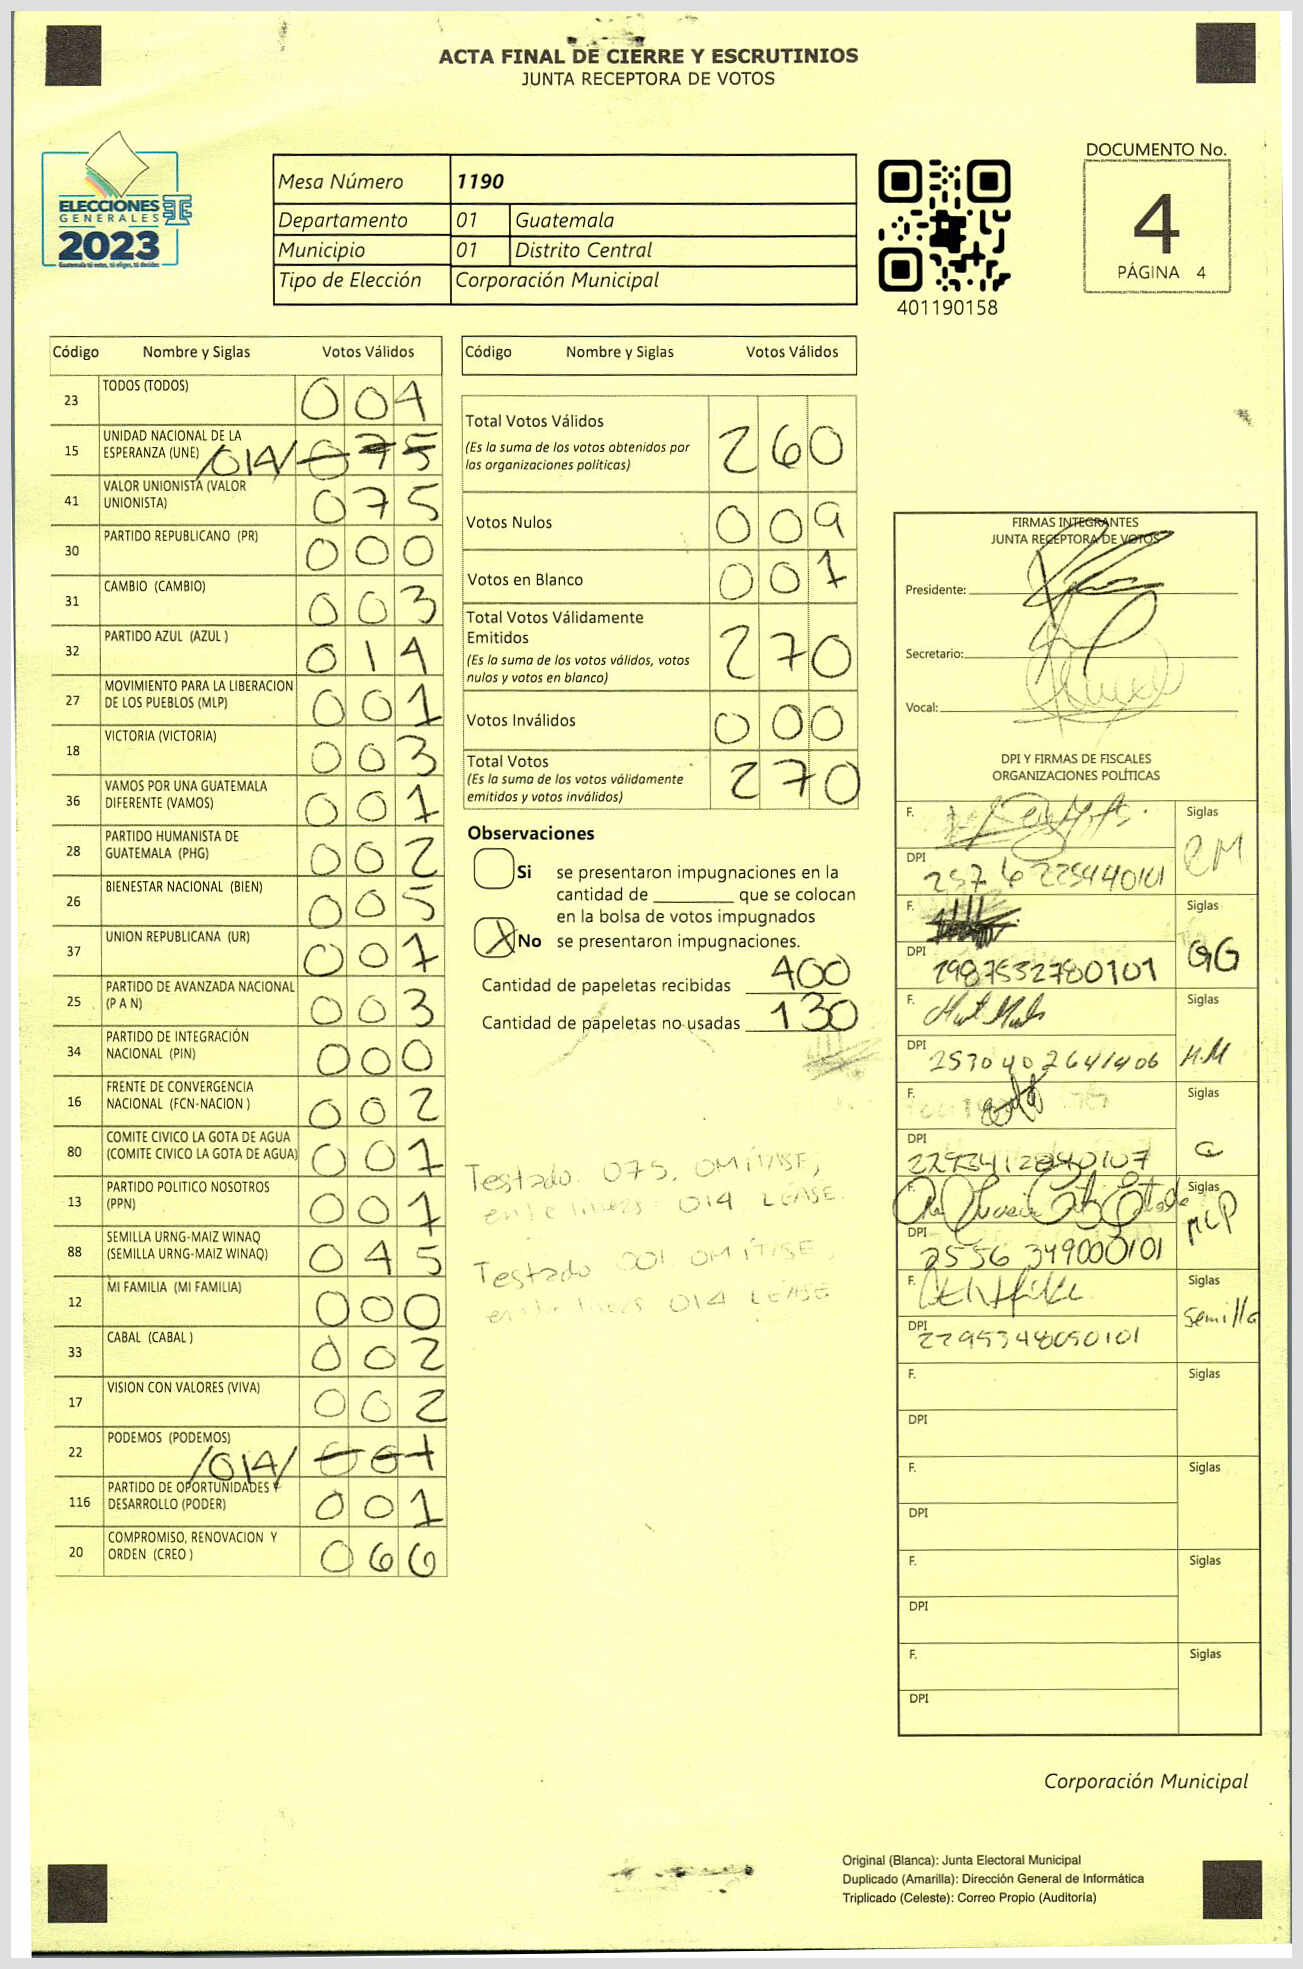 ACTA FINAL DE CIERRE Y ESCRUTINIOS
JUNTA RECEPTORA DE VOTOS
ELECCIONES
GENERALES
2023
Guatemala tú votas, tú eliges, tú decides
Mesa Número 1190
Departamento 01 Guatemala
Municipio 01 Distrito Central
Tipo de Elección Corporación Municipal
401190158
DOCUMENTO No.
4
PÁGINA 4
Código Nombre y Siglas Votos Válidos
23 TODOS (TODOS) 004
15 UNIDAD NACIONAL DE LA
ESPERANZA (UNE) /014/ 075
41 VALOR UNIONISTA (VALOR
UNIONISTA) 075
30 PARTIDO REPUBLICANO (PR) 000
31 CAMBIO (CAMBIO) 003
32 PARTIDO AZUL (AZUL ) 014
27 MOVIMIENTO PARA LA LIBERACION
DE LOS PUEBLOS (MLP) 001
18 VICTORIA (VICTORIA) 003
36 VAMOS POR UNA GUATEMALA
DIFERENTE (VAMOS) 001
28 PARTIDO HUMANISTA DE
GUATEMALA (PHG) 002
26 BIENESTAR NACIONAL (BIEN) 005
37 UNION REPUBLICANA (UR) 001
25 PARTIDO DE AVANZADA NACIONAL
(P A N) 003
34 PARTIDO DE INTEGRACIÓN
NACIONAL (PIN) 000
16 FRENTE DE CONVERGENCIA
NACIONAL (FCN-NACION ) 002
80 COMITE CIVICO LA GOTA DE AGUA
(COMITE CIVICO LA GOTA DE AGUA) 001
13 PARTIDO POLITICO NOSOTROS
(PPN) 001
88 SEMILLA URNG-MAIZ WINAQ
(SEMILLA URNG-MAIZ WINAQ) 045
12 MI FAMILIA (MI FAMILIA) 000
33 CABAL (CABAL ) 002
17 VISION CON VALORES (VIVA) 002
22 PODEMOS (PODEMOS) /014/ 001
116 PARTIDO DE OPORTUNIDADES Y
DESARROLLO (PODER) 001
20 COMPROMISO, RENOVACION Y
ORDEN (CREO ) 066
Código Nombre y Siglas Votos Válidos
Total Votos Válidos 260
(Es la suma de los votos obtenidos por
las organizaciones políticas)
Votos Nulos 009
Votos en Blanco 001
Total Votos Válidamente
Emitidos 270
(Es la suma de los votos válidos, votos
nulos y votos en blanco)
Votos Inválidos 000
Total Votos 270
(Es la suma de los votos válidamente
emitidos y votos inválidos)
Observaciones
Si se presentaron impugnaciones en la
cantidad de ________ que se colocan
en la bolsa de votos impugnados
X No se presentaron impugnaciones.
Cantidad de papeletas recibidas 400
Cantidad de papeletas no usadas 130
Testado 075, OMITASE,
entre lineas 014 LEASE.
Testado 001 OMITISE,
entre lineas 014 LEASE
FIRMAS INTEGRANTES
JUNTA RECEPTORA DE VOTOS
Presidente:
Secretario:
Vocal:
DPI Y FIRMAS DE FISCALES
ORGANIZACIONES POLÍTICAS
F. Siglas
DPI 2576 225440101 CM
F. Siglas
DPI 2987532780101 GG
F. Siglas
DPI 2530402641406 M.M
F. Siglas
DPI
F. Siglas
DPI 2556 349000101 MLP
F. Siglas
DPI 2295348050101 Semilla
F. Siglas
DPI
F. Siglas
DPI
F. Siglas
DPI
F. Siglas
DPI
Corporación Municipal
Original (Blanca): Junta Electoral Municipal
Duplicado (Amarilla): Dirección General de Informática
Triplicado (Celeste): Correo Propio (Auditoría)